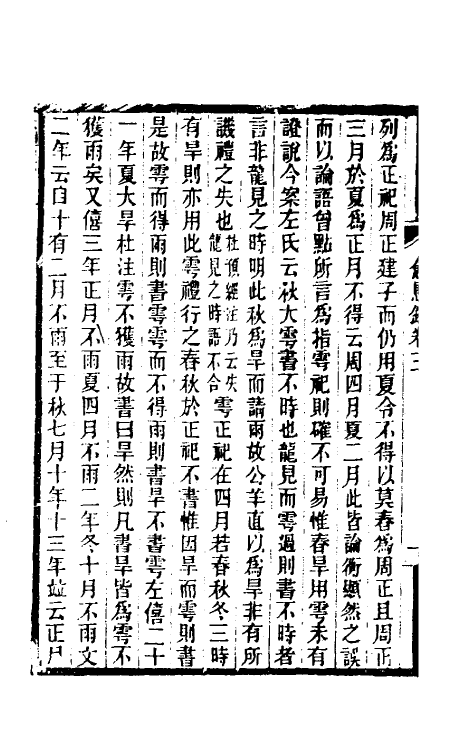 列爲正祀周正建子而仍用夏令不得以莫春爲周正且周正
三月於夏爲正月不得云周四月夏二月此皆論衡顯然之誤
而以論語曾點所言爲指雩祀則確不可易惟春旱用雩未有
證說今案左氏云秋大雩書不時也龍見而雩過則書不時者
言非龍見之時明此秋爲旱而請雨故公羊直以爲旱非有所
譏禮之失也杜預經注乃云失龍見之時語不合雩正祀在四月若春秋冬三時
有旱則亦用此雩禮行之春秋於正祀不書惟因旱而雩則書
是故雩而得雨則書雩雩而不得雨則書旱不書雩左僖二十
一年夏大旱杜注雩不獲雨故書曰旱然則凡書旱皆爲雩不
獲雨矣又僖三年正月不雨夏四月不雨二年冬十月不雨文
二年云自十有二月不雨至于秋七月十年十三年竝云正月
卷三